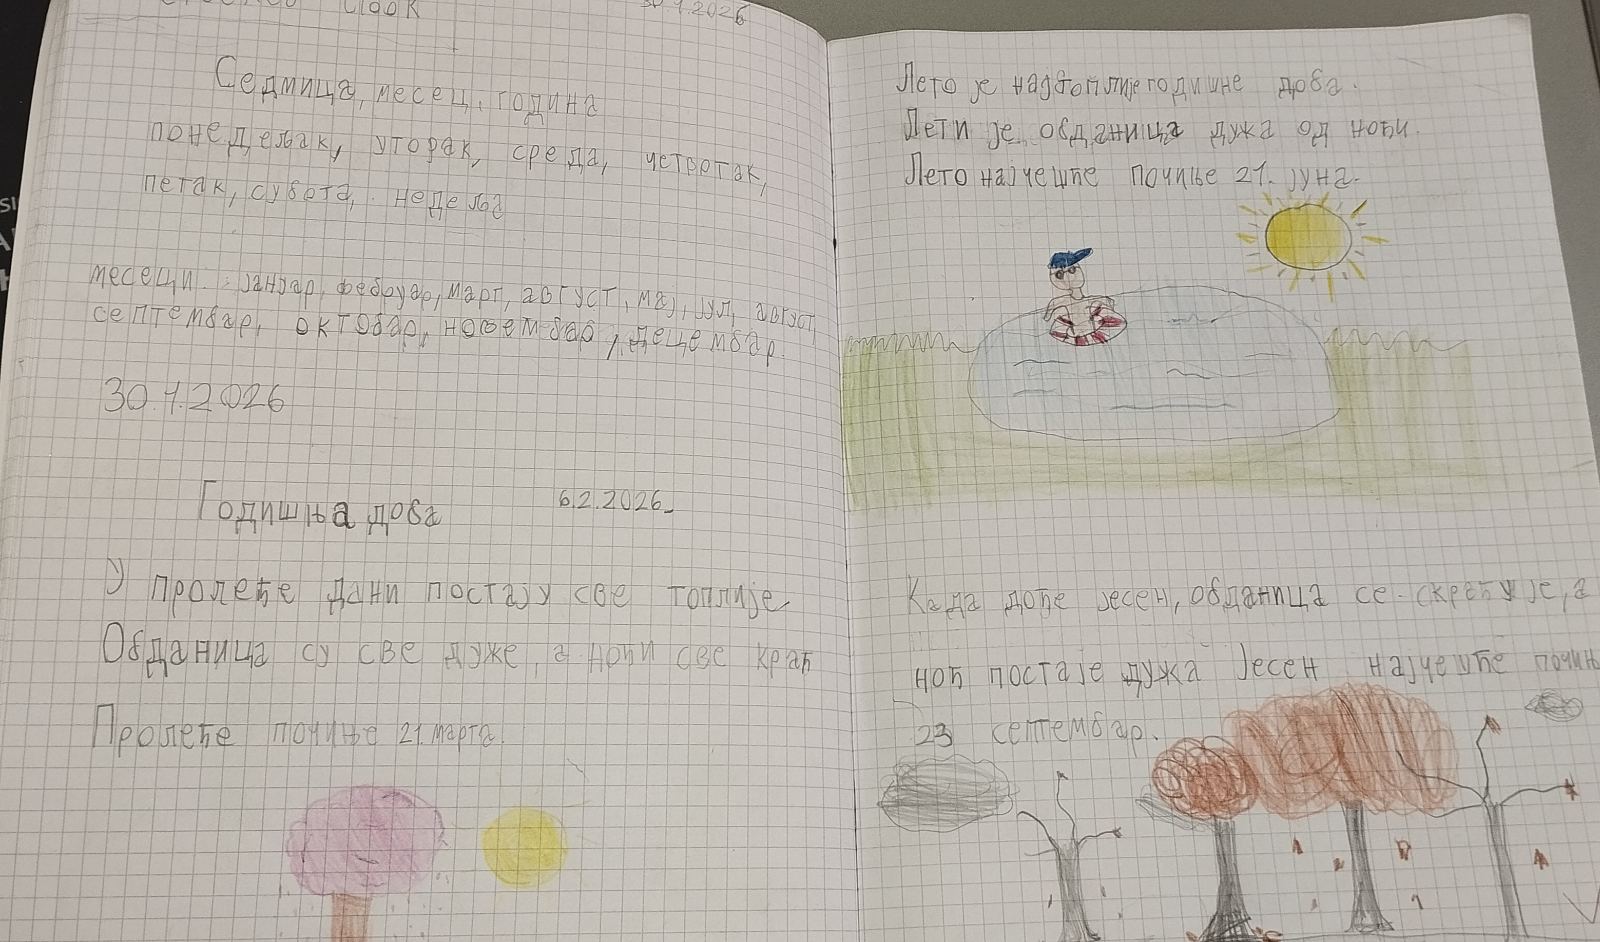 30.1.2026
Седмица, месец, година
понедељак, уторак, среда, четвртак,
петак, субота, недеља
месеци: јануар, фебруар, март, август, мај, јул, август
септембар, октобар, новембар, децембар.
30.1.2026
Годишња доба 6.2.2026.
У пролеће дани постају све топлије
Обданица су све дуже, а ноћи све краћ
Пролеће почиње 21. марта.
Лето је годишне доба.
Лети је обданица дужа од ноћи.
Лето најчешће почиње 21. јуна.
Када дође јесен, обданица се скраћује, а
ноћ постаје дужа Јесен најчешће почињ
23 септембар.